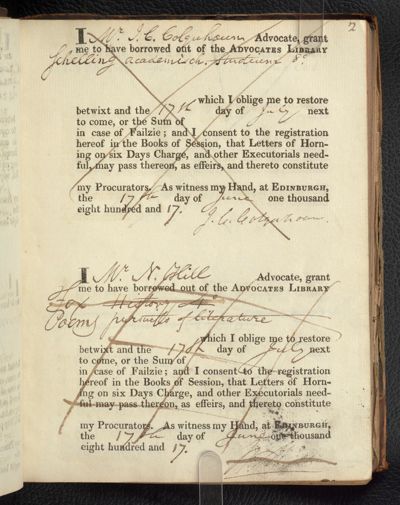 2
I Mr. J. C. Colquhoun Advocate, grant
me to have borrowed out of the ADVOCATES LIBRARY
Schelling academisch. Studium 8o.
which I oblige me to restore
betwixt and the 17th day of July next
to come, or the Sum of
in case of Failzie; and I consent to the registration
hereof in the Books of Session, that Letters of Horn-
ing on six Days Charge, and other Executorials need-
ful, may pass thereon, as effeirs, and thereto constitute
my Procurators. As witness my Hand, at EDINBURGH,
the 17th day of June one thousand
eight hundred and 17.
J. C. Colquhoun.
I Mr. N. Hill Advocate, grant
me to have borrowed out of the ADVOCATES LIBRARY
Fox History
Poems pursuits of literature
which I oblige me to restore
betwixt and the 17th day of July next
to come, or the Sum of
in case of Failzie; and I consent to the registration
hereof in the Books of Session, that Letters of Horn-
ing on six Days Charge, and other Executorials need-
ful may pass thereon, as effeirs, and thereto constitute
my Procurators. As witness my Hand, at EDINBURGH,
the 17th day of June one thousand
eight hundred and 17.